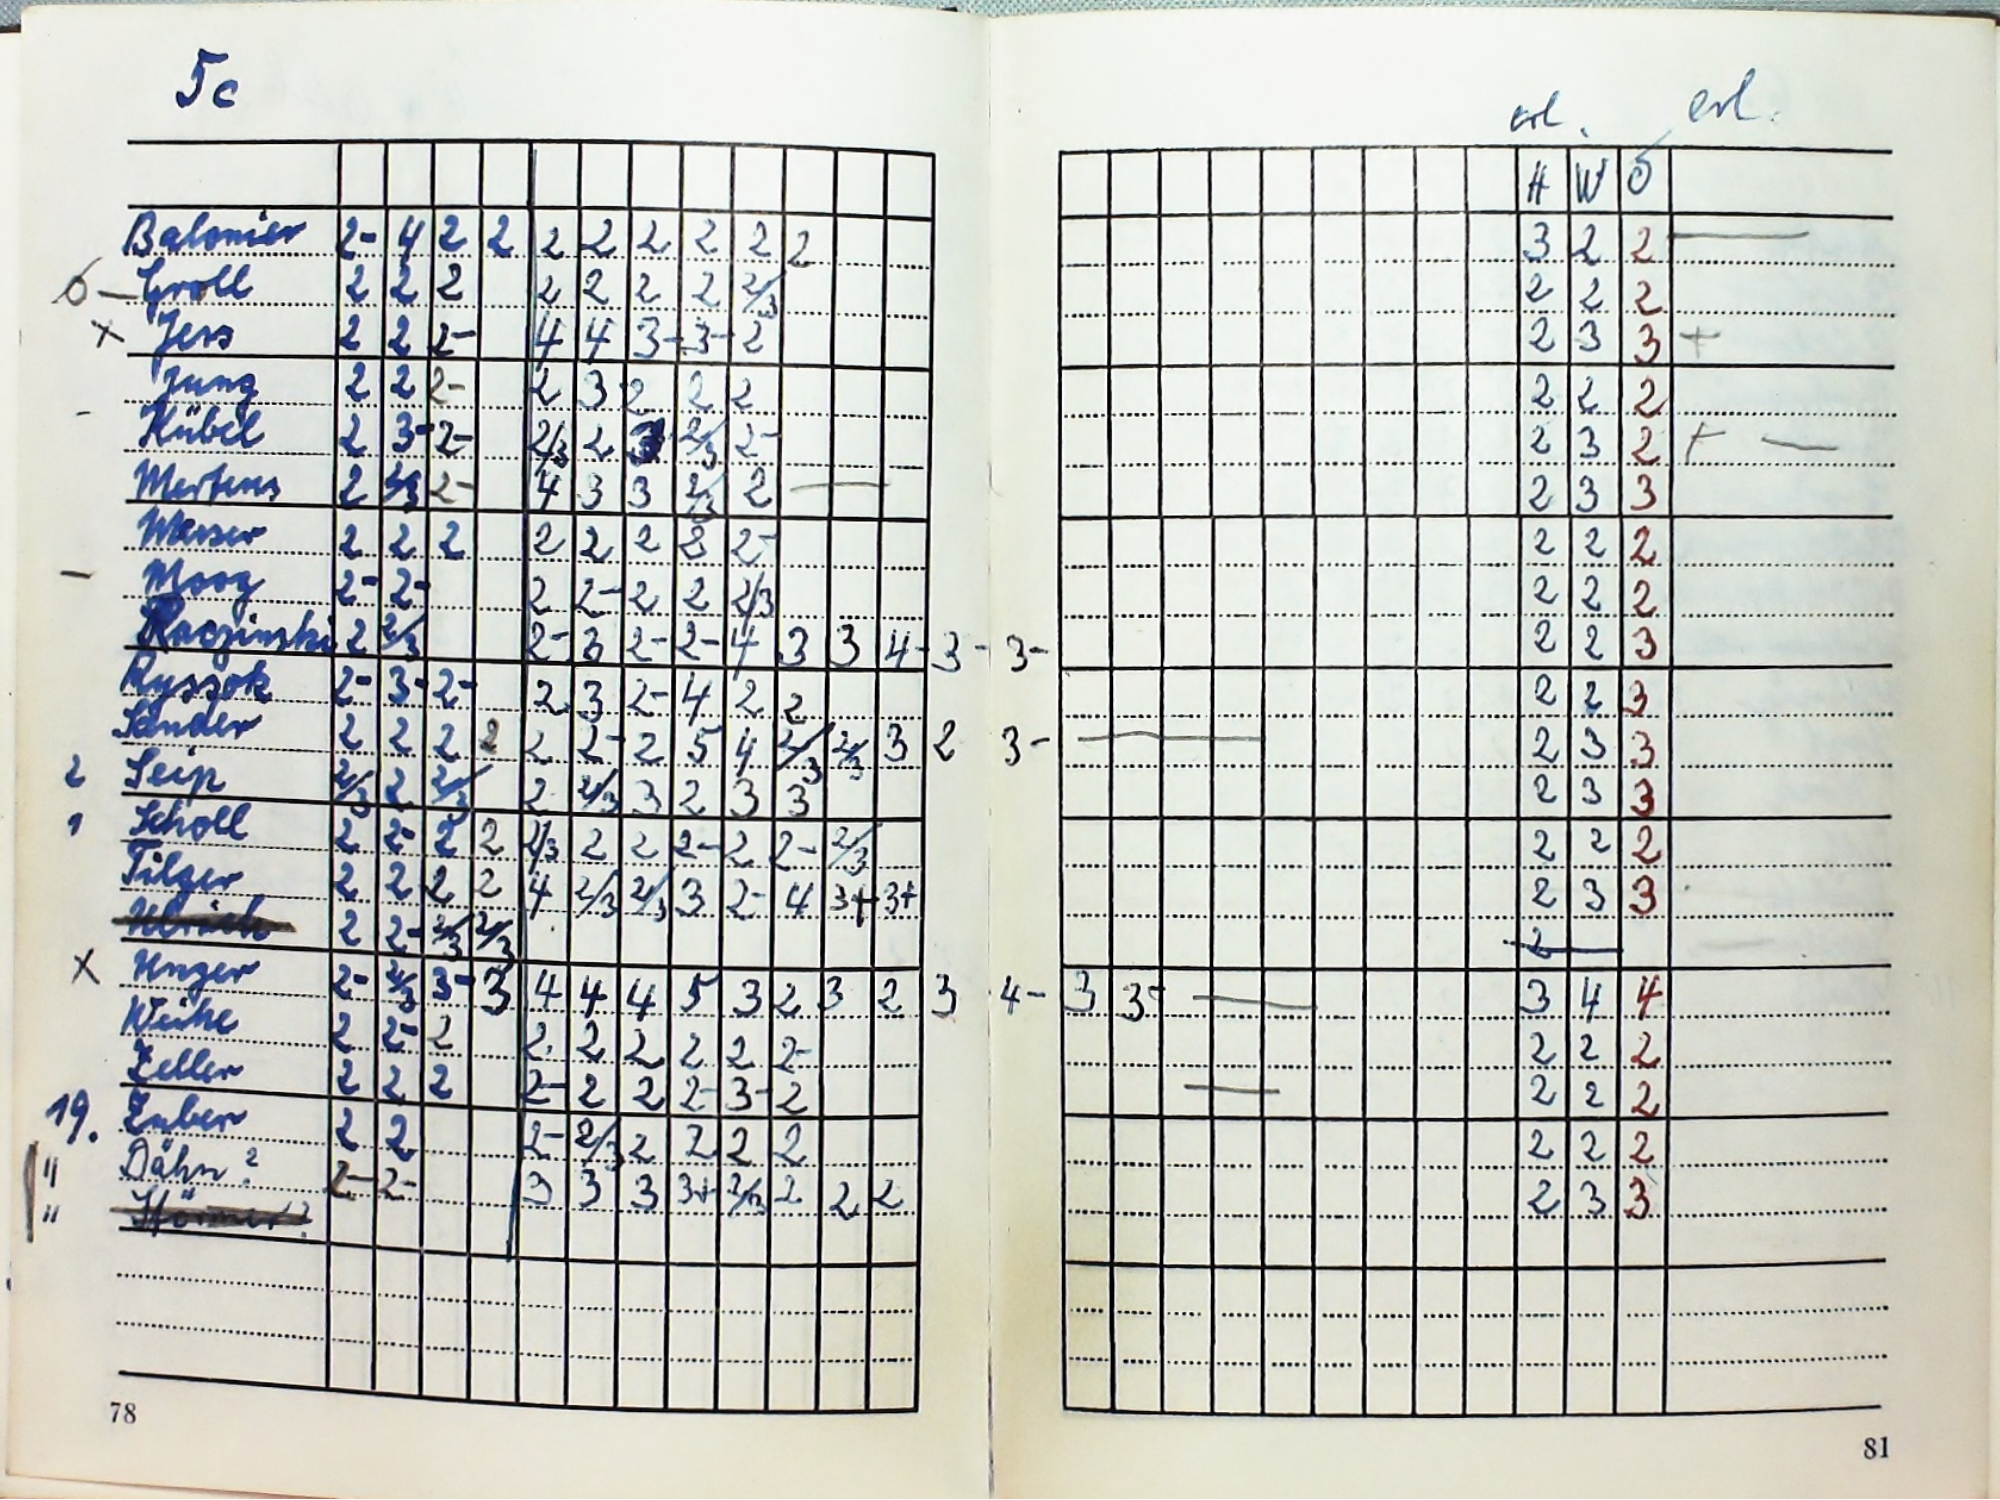 5c
erl. erl.
H W Ö
Balonier 2- 4 2 2 2 2 2 2 2 2 3 2 2
Groll 2 2 2 2 2 2 2 2/3 2 2 2
x Jess 2 2 2- 4 4 3- 3- 2 2 3 3 +
Jung 2 2 2- 2 3 2 2 2 2 2 2
- Kübel 2 3- 2- 2/3 2 3 2/3 2- 2 3 2 + —
Mertens 2 2/3 2- 4 3 3 2/3 2 — 2 3 3
Meiser 2 2 2 2 2 2 2 2- 2 2 2
- Moog 2- 2- 2 2- 2 2 2/3 2 2 2
Raczinski 2 2/3 2- 3 2- 2- 4 3 3 4- 3- 3- 2 2 3
Ryssok 2- 3- 2- 2 3 2- 4 2 2 2 2 3
Sander 2 2 2 2 2 2- 2 5 4 2/3 2/3 3 2 3- — 2 3 3
2 Seip 2/3 2 2/3 2 2/3 3 2 3 3 2 3 3
1 Scholl 2 2- 2 2 2/3 2 2 2- 2 2- 2/3 2 2 2
Tilger 2 2 2 2 4 2/3 2/3 3 2- 4 3+ 3+ 2 3 3
2 2- 2/3 2/3 2
x Unger 2- 2/3 3- 3 4 4 4 5 3 2 3 2 3 4- 3 3- — 3 4 4
2 2- 2 2 2 2 2 2 2- 2 2 2
Zeller 2 2 2 2- 2 2 2- 3- 2 — 2 2 2
19. Zuber 2 2 2- 2/3 2 2 2 2 2 2 2
" Dähn? 2- 2- 3 3 3 3+ 2/3 2 2 2 2 3 3
" Störmer?
78
81